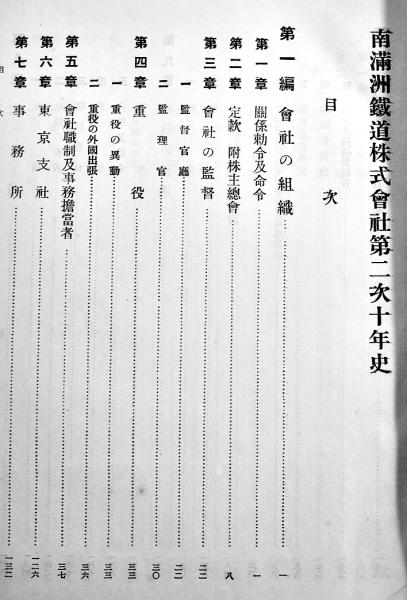 南滿洲鐵道株式會社第二次十年史
目次
第一編 會社の組織……一
第一章 關係勅令及命令……一
第二章 定款 附株主總會……八
第三章 會社の監督……二二
一 監督官廳……二二
二 監理官……三〇
第四章 重役……三三
一 重役の異動……三三
二 重役の外國出張……三六
第五章 會社職制及事務擔當者……三七
第六章 東京支社……一二六
第七章 事務所……一三二
目次